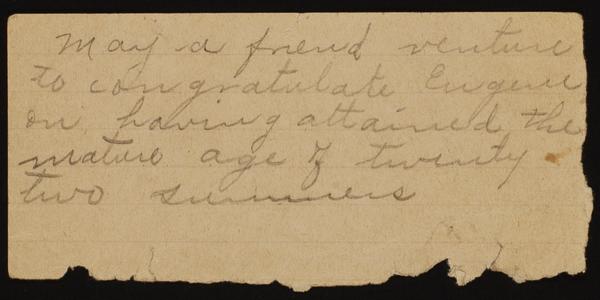 May a friend venture
to congratulate Eugene
on having attained the
mature age of twenty
two summers